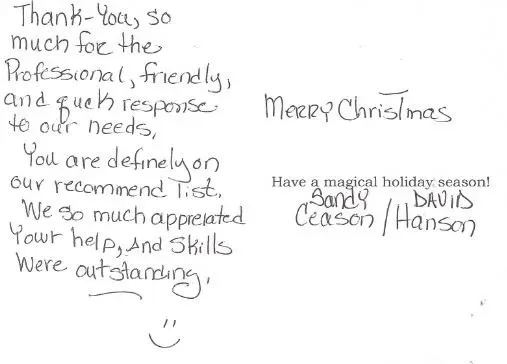 Thank-You, so
much for the
Professional, friendly,
and quck response
to our needs,
You are definely on
our recommend list.
We so much appreiated
Your help, And Skills
Were outstanding.
Merry Christmas
Have a magical holiday season!
Sandy DAVID
Ceason / Hanson